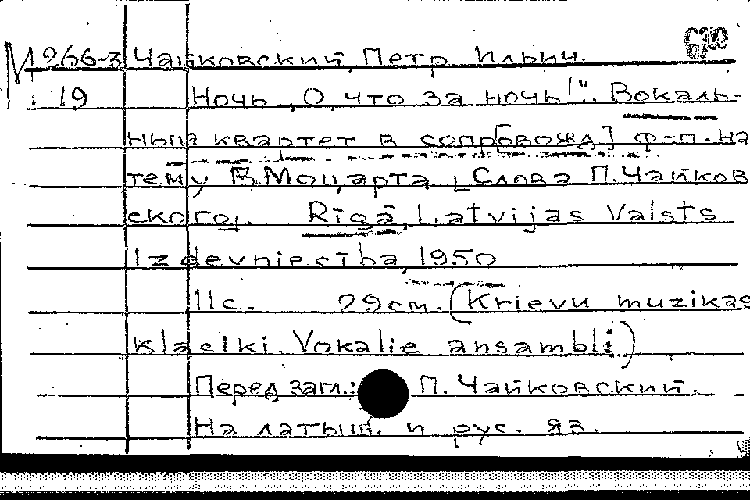 М 266-3 Чайковский, Петр Ильич.
19 Ночь „О, что за ночь!". Вокаль-
ный квартет в сопр[овожд] ф-п. на
тему В. Моцарта [Слова П. Чайков
ского]. Rīgā, Latvijas Valsts
Izdevniecība, 1950
11с. 29см. (Krievu muzikas
klasiki. Vokalie ansambli)
Перед загл.: П. Чайковский.
На латыш. и рус. яз.